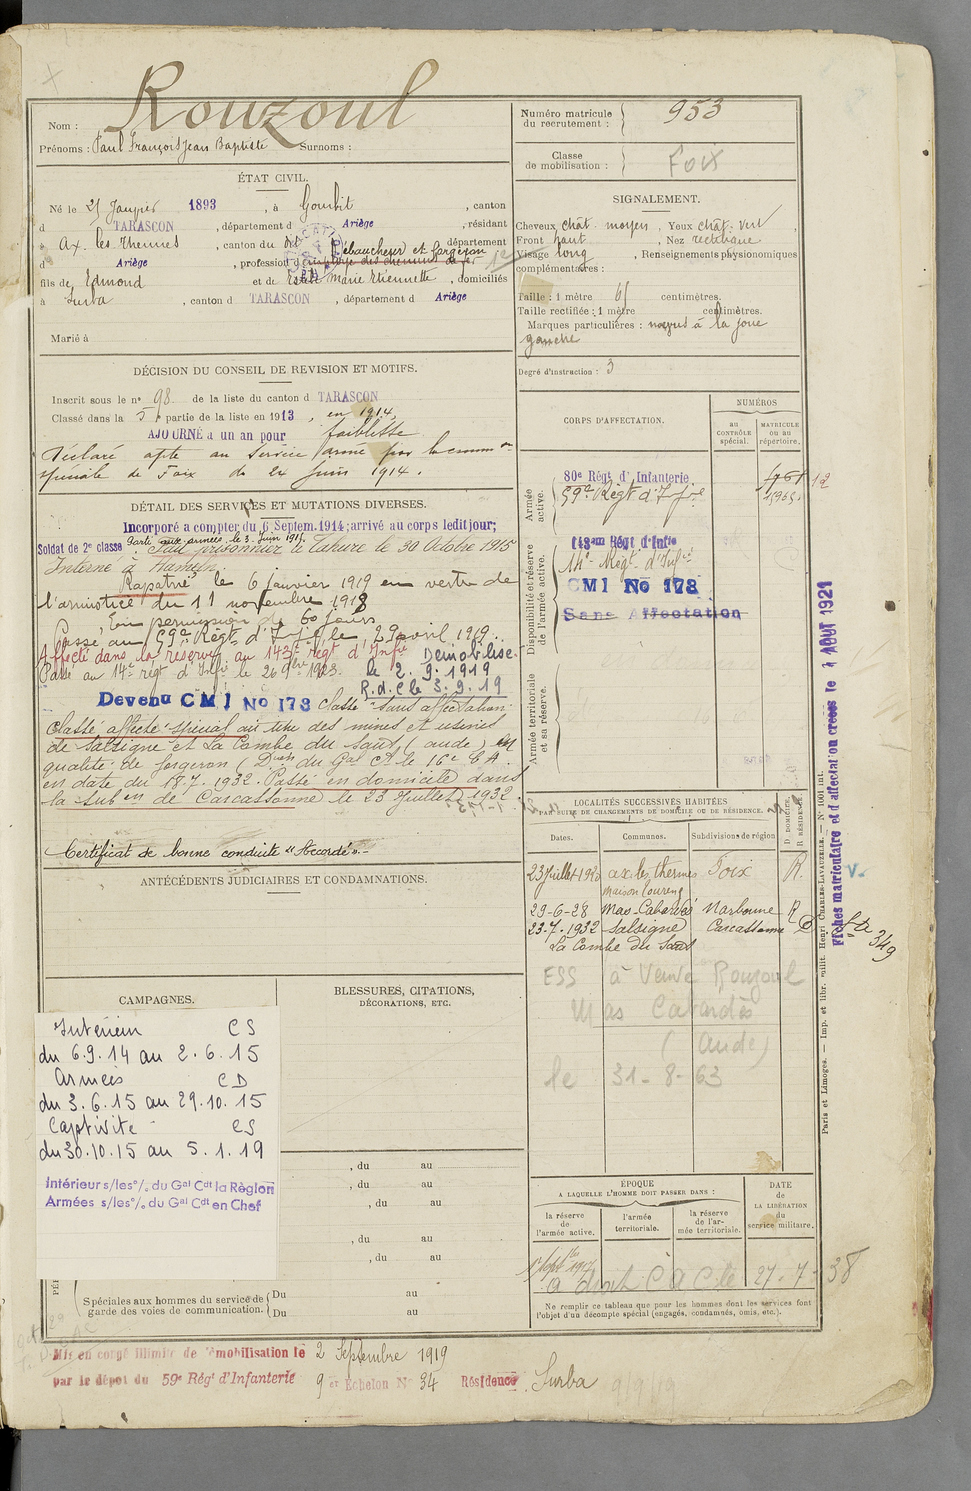 Rouzoul
Nom :
Prénoms : Paul François Jean Baptiste Surnoms :
Numéro matricule du recrutement : 953
Classe de mobilisation : Foix
ÉTAT CIVIL.
Né le 25 Janvier 1893, à Gourbit, canton
d TARASCON, département d Ariège, résidant
à Ax les Thermes, canton du dit, département
Ébaucheur et forgeron
d Ariège, profession d'employé des chemins de fer
fils de Edmond et de Estèbe Marie Etiennette, domiciliés
à Surba, canton d TARASCON, département d Ariège
Marié à
SIGNALEMENT.
Cheveux chât. moyen, Yeux chât. vert,
Front haut, Nez rectiligne
Visage long, Renseignements physionomiques
complémentaires :
Taille : 1 mètre 61 centimètres.
Taille rectifiée : 1 mètre centimètres.
Marques particulières : nœvus à la joue
gauche
Degré d'instruction : 3
DÉCISION DU CONSEIL DE REVISION ET MOTIFS.
Inscrit sous le n° 98 de la liste du canton d TARASCON
Classé dans la 5e partie de la liste en 1913, en 1914,
AJOURNÉ à un an pour faiblesse
Déclaré apte au service armé par la comm on
spéciale de Foix du 24 Juin 1914.
DÉTAIL DES SERVICES ET MUTATIONS DIVERSES.
Incorporé à compter du 6 Septem. 1914; arrivé au corps ledit jour;
Soldat de 2e classe. Parti aux armées le 3 Juin 1915.
Fait prisonnier à Tahure le 30 Octobre 1915
Interné à Hameln.
Rapatrié le 6 janvier 1919 en vertu de
l'armistice du 11 novembre 1918
En permission de 60 jours
Passé au 59e Régt d'Inf ie le 29 avril 1919.
Affecté dans la réserve au 143e régt d'Infie Démobilisé
Passé au 14e régt d'Infie le 26 9bre 1923. le 2.9.1919
R.d.C le 3.9.19
Devenu CMI No 173 classé "sans affectation"
Classé affecté spécial au titre des mines et usines
de Salsigne et La Combe du Saut (aude) en
qualité de forgeron (Don du Gal Ct le 16e C.A.
en date du 18.7.1932. Passé en domicile dans
la Subon de Carcassonne le 23 Juillet 1932.
Certificat de bonne conduite "Accordé".
ANTÉCÉDENTS JUDICIAIRES ET CONDAMNATIONS.
CORPS D'AFFECTATION.
NUMÉROS
au CONTRÔLE spécial.
MATRICULE ou au répertoire.
Armée active.
80e Régt d'Infanterie
59e Régt d'Infie
Disponibilité et réserve de l'armée active.
143em Régt d'Infie
14e Régt d'Infie
CMI No 173
Sans Affectation
Armée territoriale et sa réserve.
LOCALITÉS SUCCESSIVES HABITÉES
PAR SUITE DE CHANGEMENTS DE DOMICILE OU DE RÉSIDENCE.
D. DOMICILE.
R. RÉSIDENCE.
Dates. Communes. Subdivisions de région
23 Juillet 1920 ax les thermes Foix R.
29-6-28 Mas-Cabardès Narbonne R
23.7.1932 Salsigne Carcassonne D
La Combe du Saut
ESS à Veuve Rouzoul
Mas Cabardès
(Aude)
le 31-8-63
349
Fiches matriculaire et d'affectation créées le 4 AOUT 1921
Paris et Limoges. — Imp. et libr. milit. Henri CHARLES-LAVAUZELLE. — N° 1001 int.
CAMPAGNES.
BLESSURES, CITATIONS,
DÉCORATIONS, ETC.
Intérieur CS
du 6.9.14 au 2.6.15
Armées CD
du 3.6.15 au 29.10.15
Captivité CS
du 30.10.15 au 5.1.19
Intérieur s/les °/. du Gal Cdt la Région
Armées s/les °/. du Gal Cdt en Chef
, du au
, du au
, du au
, du au
, du au
Spéciales aux hommes du service de Du au
garde des voies de communication. Du au
ÉPOQUE
A LAQUELLE L'HOMME DOIT PASSER DANS :
la réserve de l'armée active.
l'armée territoriale.
la réserve de l'armée territoriale.
DATE de LA LIBÉRATION du service militaire.
a droit C à C le 27-7-38
Ne remplir ce tableau que pour les hommes dont les services font
l'objet d'un décompte spécial (engagés, condamnés, omis, etc.).
Mis en congé illimité de démobilisation le 2 Septembre 1919
par le dépôt du 59e Régt d'Infanterie 9e Echelon N° 34 Résidence Surba